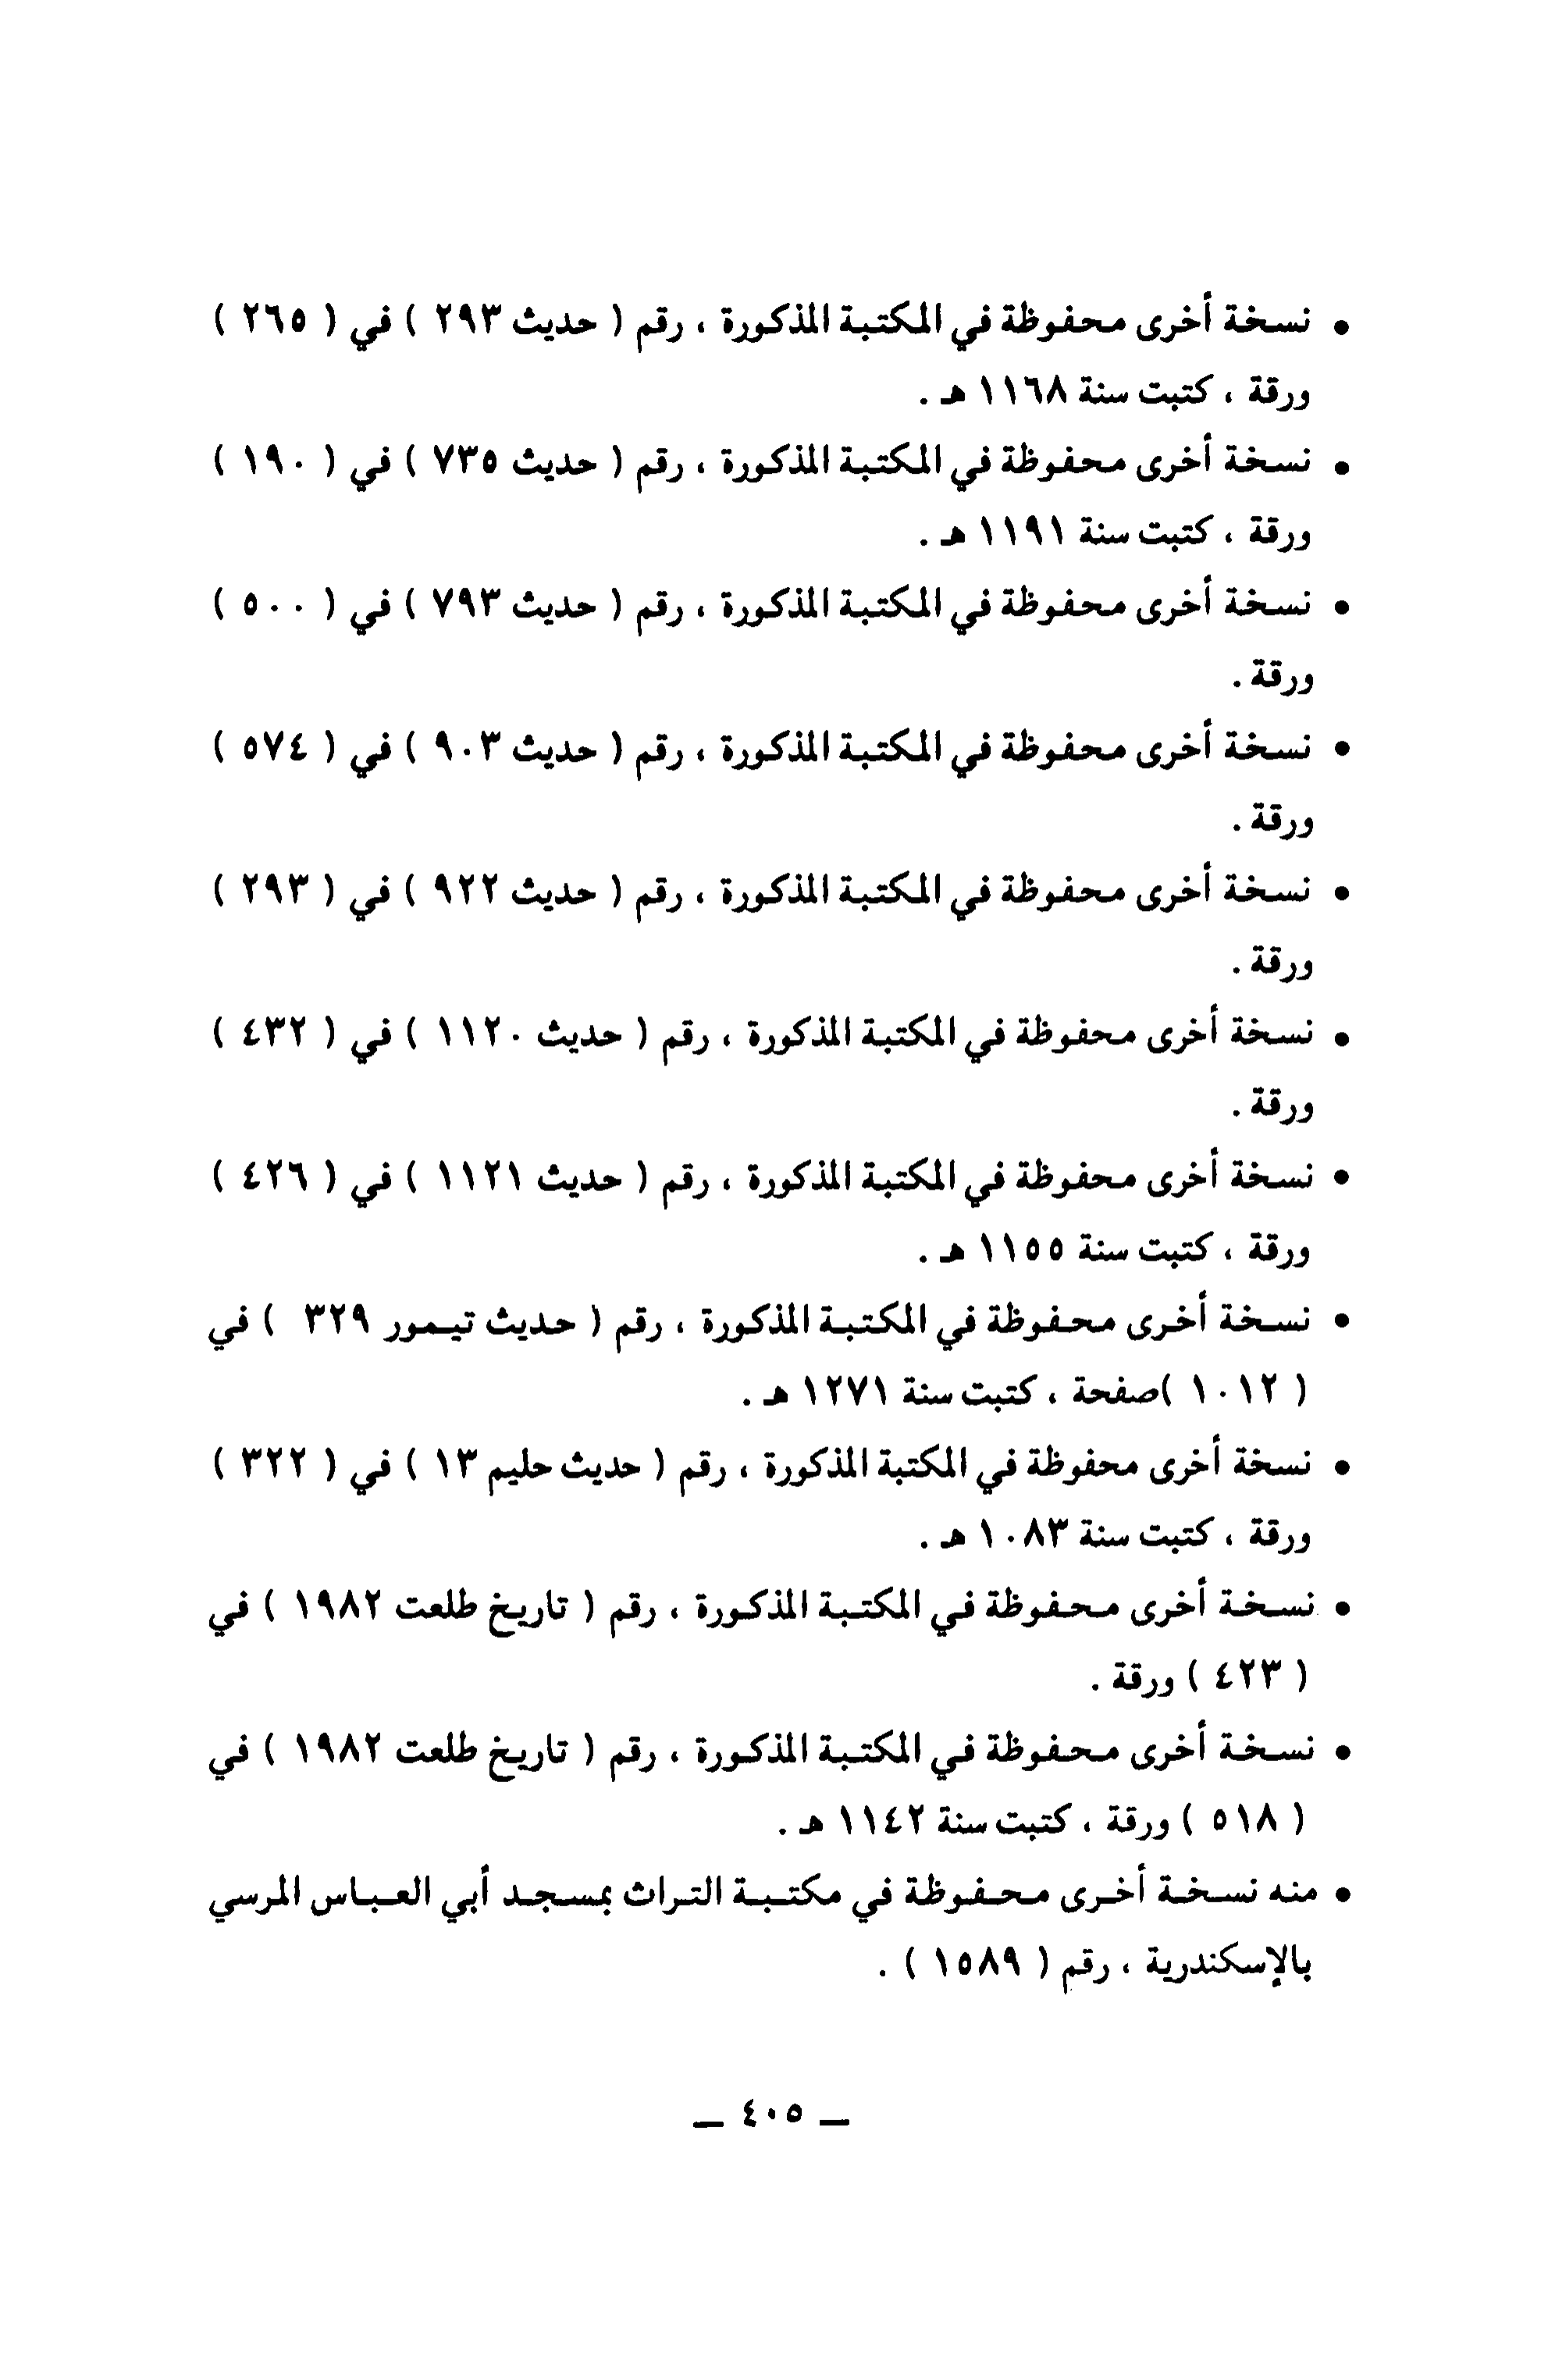 • نسخة أخرى محفوظة في المكتبة المذكورة ، رقم ( حديث ٢٩٣ ) في ( ٢٦٥ )
ورقة ، كتبت سنة ١١٦٨ هـ .
• نسخة أخرى محفوظة في المكتبة المذكورة ، رقم ( حديث ٧٣٥ ) في ( ١٩٠ )
ورقة ، كتبت سنة ١١٩١ هـ .
• نسخة أخرى محفوظة في المكتبة المذكورة ، رقم ( حديث ٧٩٣ ) في ( ٥٠٠ )
ورقة .
• نسخة أخرى محفوظة في المكتبة المذكورة ، رقم ( حديث ٩٠٣ ) في ( ٥٧٤ )
ورقة .
• نسخة أخرى محفوظة في المكتبة المذكورة ، رقم ( حديث ٩٢٢ ) في ( ٢٩٣ )
ورقة .
• نسخة أخرى محفوظة في المكتبة المذكورة ، رقم ( حديث ١١٢٠ ) في ( ٤٣٢ )
ورقة .
• نسخة أخرى محفوظة في المكتبة المذكورة ، رقم ( حديث ١١٢١ ) في ( ٤٢٦ )
ورقة ، كتبت سنة ١١٥٥ هـ .
• نسخة أخرى محفوظة في المكتبة المذكورة ، رقم ( حديث تيمور ٣٢٩ ) في
( ١٠١٢ )صفحة ، كتبت سنة ١٢٧١ هـ .
• نسخة أخرى محفوظة في المكتبة المذكورة ، رقم ( حديث حليم ١٣ ) في ( ٣٢٢ )
ورقة ، كتبت سنة ١٠٨٣ هـ .
• نسخة أخرى محفوظة في المكتبة المذكورة ، رقم ( تاريخ طلعت ١٩٨٢ ) في
( ٤٢٣ ) ورقة .
• نسخة أخرى محفوظة في المكتبة المذكورة ، رقم ( تاريخ طلعت ١٩٨٢ ) في
( ٥١٨ ) ورقة ، كتبت سنة ١١٤٢ هـ .
• منه نسخة أخرى محفوظة في مكتبة التراث بمسجد أبي العباس المرسي
بالإسكندرية ، رقم ( ١٥٨٩ ) .
ـ ٤٠٥ ـ